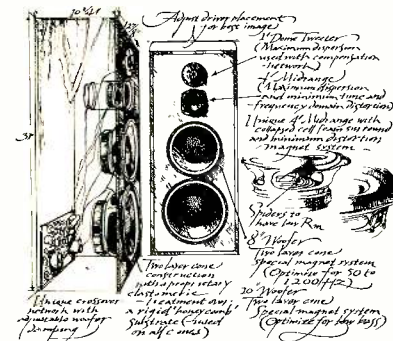 Adjust driver placement
for best image
1" Dome Tweeter
(Maximum dispersion
used with compensation
network)
4" Midrange
(Maximum dispersion
and minimum time and
frequency domain distortion)
Unique 4" Midrange with
collapsed cell foam surround
and minimum distortion
magnet system
38"
Spiders to
have low Rm
8" Woofer
Two layer cone
Special magnet system
(Optimize for 50 to
1,200 Hz)
10" Woofer
Two layer cone
Special magnet system
(Optimize for low bass)
Two layer cone
construction
with a proprietary
elastomeric
treatment over
a rigid 'honeycomb'
Substrate (used
on all cones)
Unique crossover
network with
adjustable woofer
damping